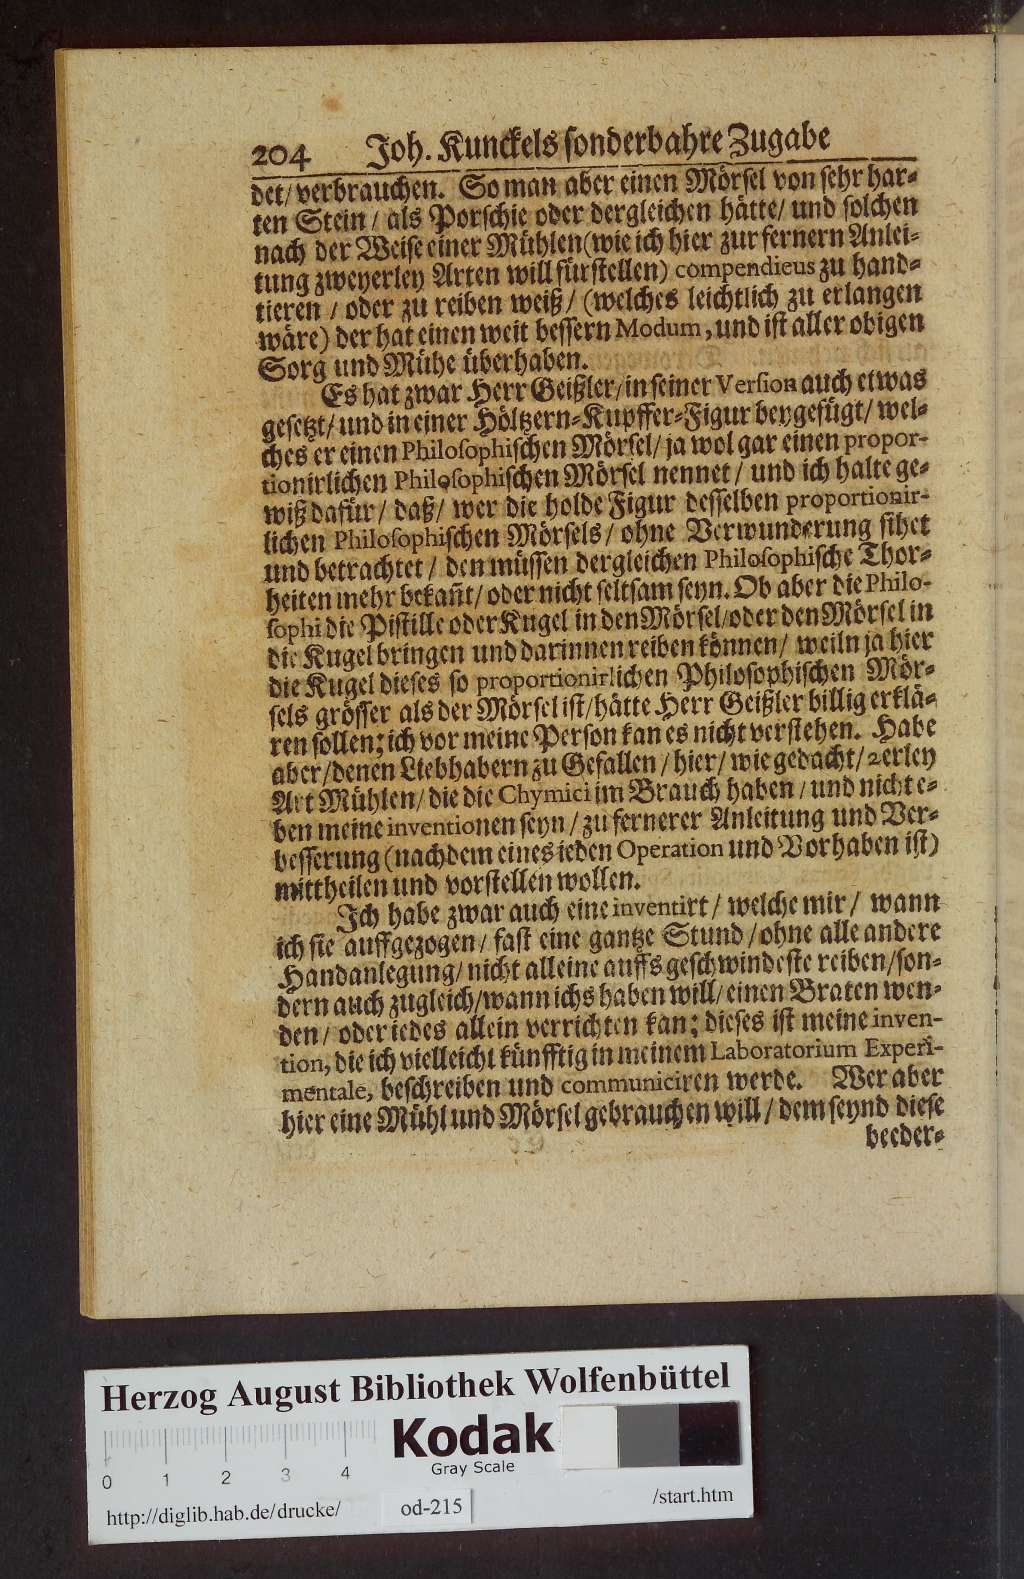 204 Joh. Kunckels sonderbahre Zugabe
det/ verbrauchen. So man aber einen Mörsel von sehr har-
ten Stein / als Porschie oder dergleichen hätte/ und solchen
nach der Weise einer Mühlen (wie ich hier zur fernern Anlei-
tung zweyerley Arten will fürstellen) compendieus zu hand-
tieren / oder zu reiben weiß/ (welches leichtlich zu erlangen
wäre) der hat einen weit bessern Modum, und ist aller obigen
Sorg und Mühe überhaben.
Es hat zwar Herr Geißler/ in seiner Version auch etwas
gesetzt/ und in einer Höltzern-Kupffer-Figur beygefügt/ wel-
ches er einen Philosophischen Mörsel/ ja wol gar einen propor-
tionirlichen Philosophischen Mörsel nennet / und ich halte ge-
wiß dafür / daß/ wer die holde Figur desselben proportionir-
lichen Philosophischen Mörsels / ohne Verwunderung sihet
und betrachtet / den müssen dergleichen Philosophische Thor-
heiten mehr bekañt/ oder nicht seltsam seyn. Ob aber die Philo-
sophi die Pistille oder Kugel in den Mörsel/ oder den Mörsel in
die Kugel bringen und darinnen reiben können/ weiln ja hier
die Kugel dieses so proportionirlichen Philosophischen Mör-
sels grösser als der Mörsel ist/ hätte Herr Geißler billig erklä-
ren sollen; ich vor meine Person kan es nicht verstehen. Habe
aber/ denen Liebhabern zu Gefallen / hier/ wie gedacht/ 2erley
Art Mühlen/ die die Chymici im Brauch haben / und nicht e-
ben meine inventionen seyn / zu fernerer Anleitung und Ver-
besserung (nachdem eines ieden Operation und Vorhaben ist)
mittheilen und vorstellen wollen.
Ich habe zwar auch eine inventirt / welche mir / wann
ich sie auffgezogen / fast eine gantze Stund / ohne alle andere
Handanlegung/ nicht alleine auffs geschwindeste reiben/ son-
dern auch zugleich/ wann ichs haben will/ einen Braten wen-
den / oder iedes allein verrichten kan; dieses ist meine inven-
tion, die ich vielleicht künfftig in meinem Laboratorium Experi-
mentale, beschreiben und communiciren werde. Wer aber
hier eine Mühl und Mörsel gebrauchen will / dem seynd diese
beeder-
Herzog August Bibliothek Wolfenbüttel
Kodak
Gray Scale
0 1 2 3 4
http://diglib.hab.de/drucke/ od-215 /start.htm